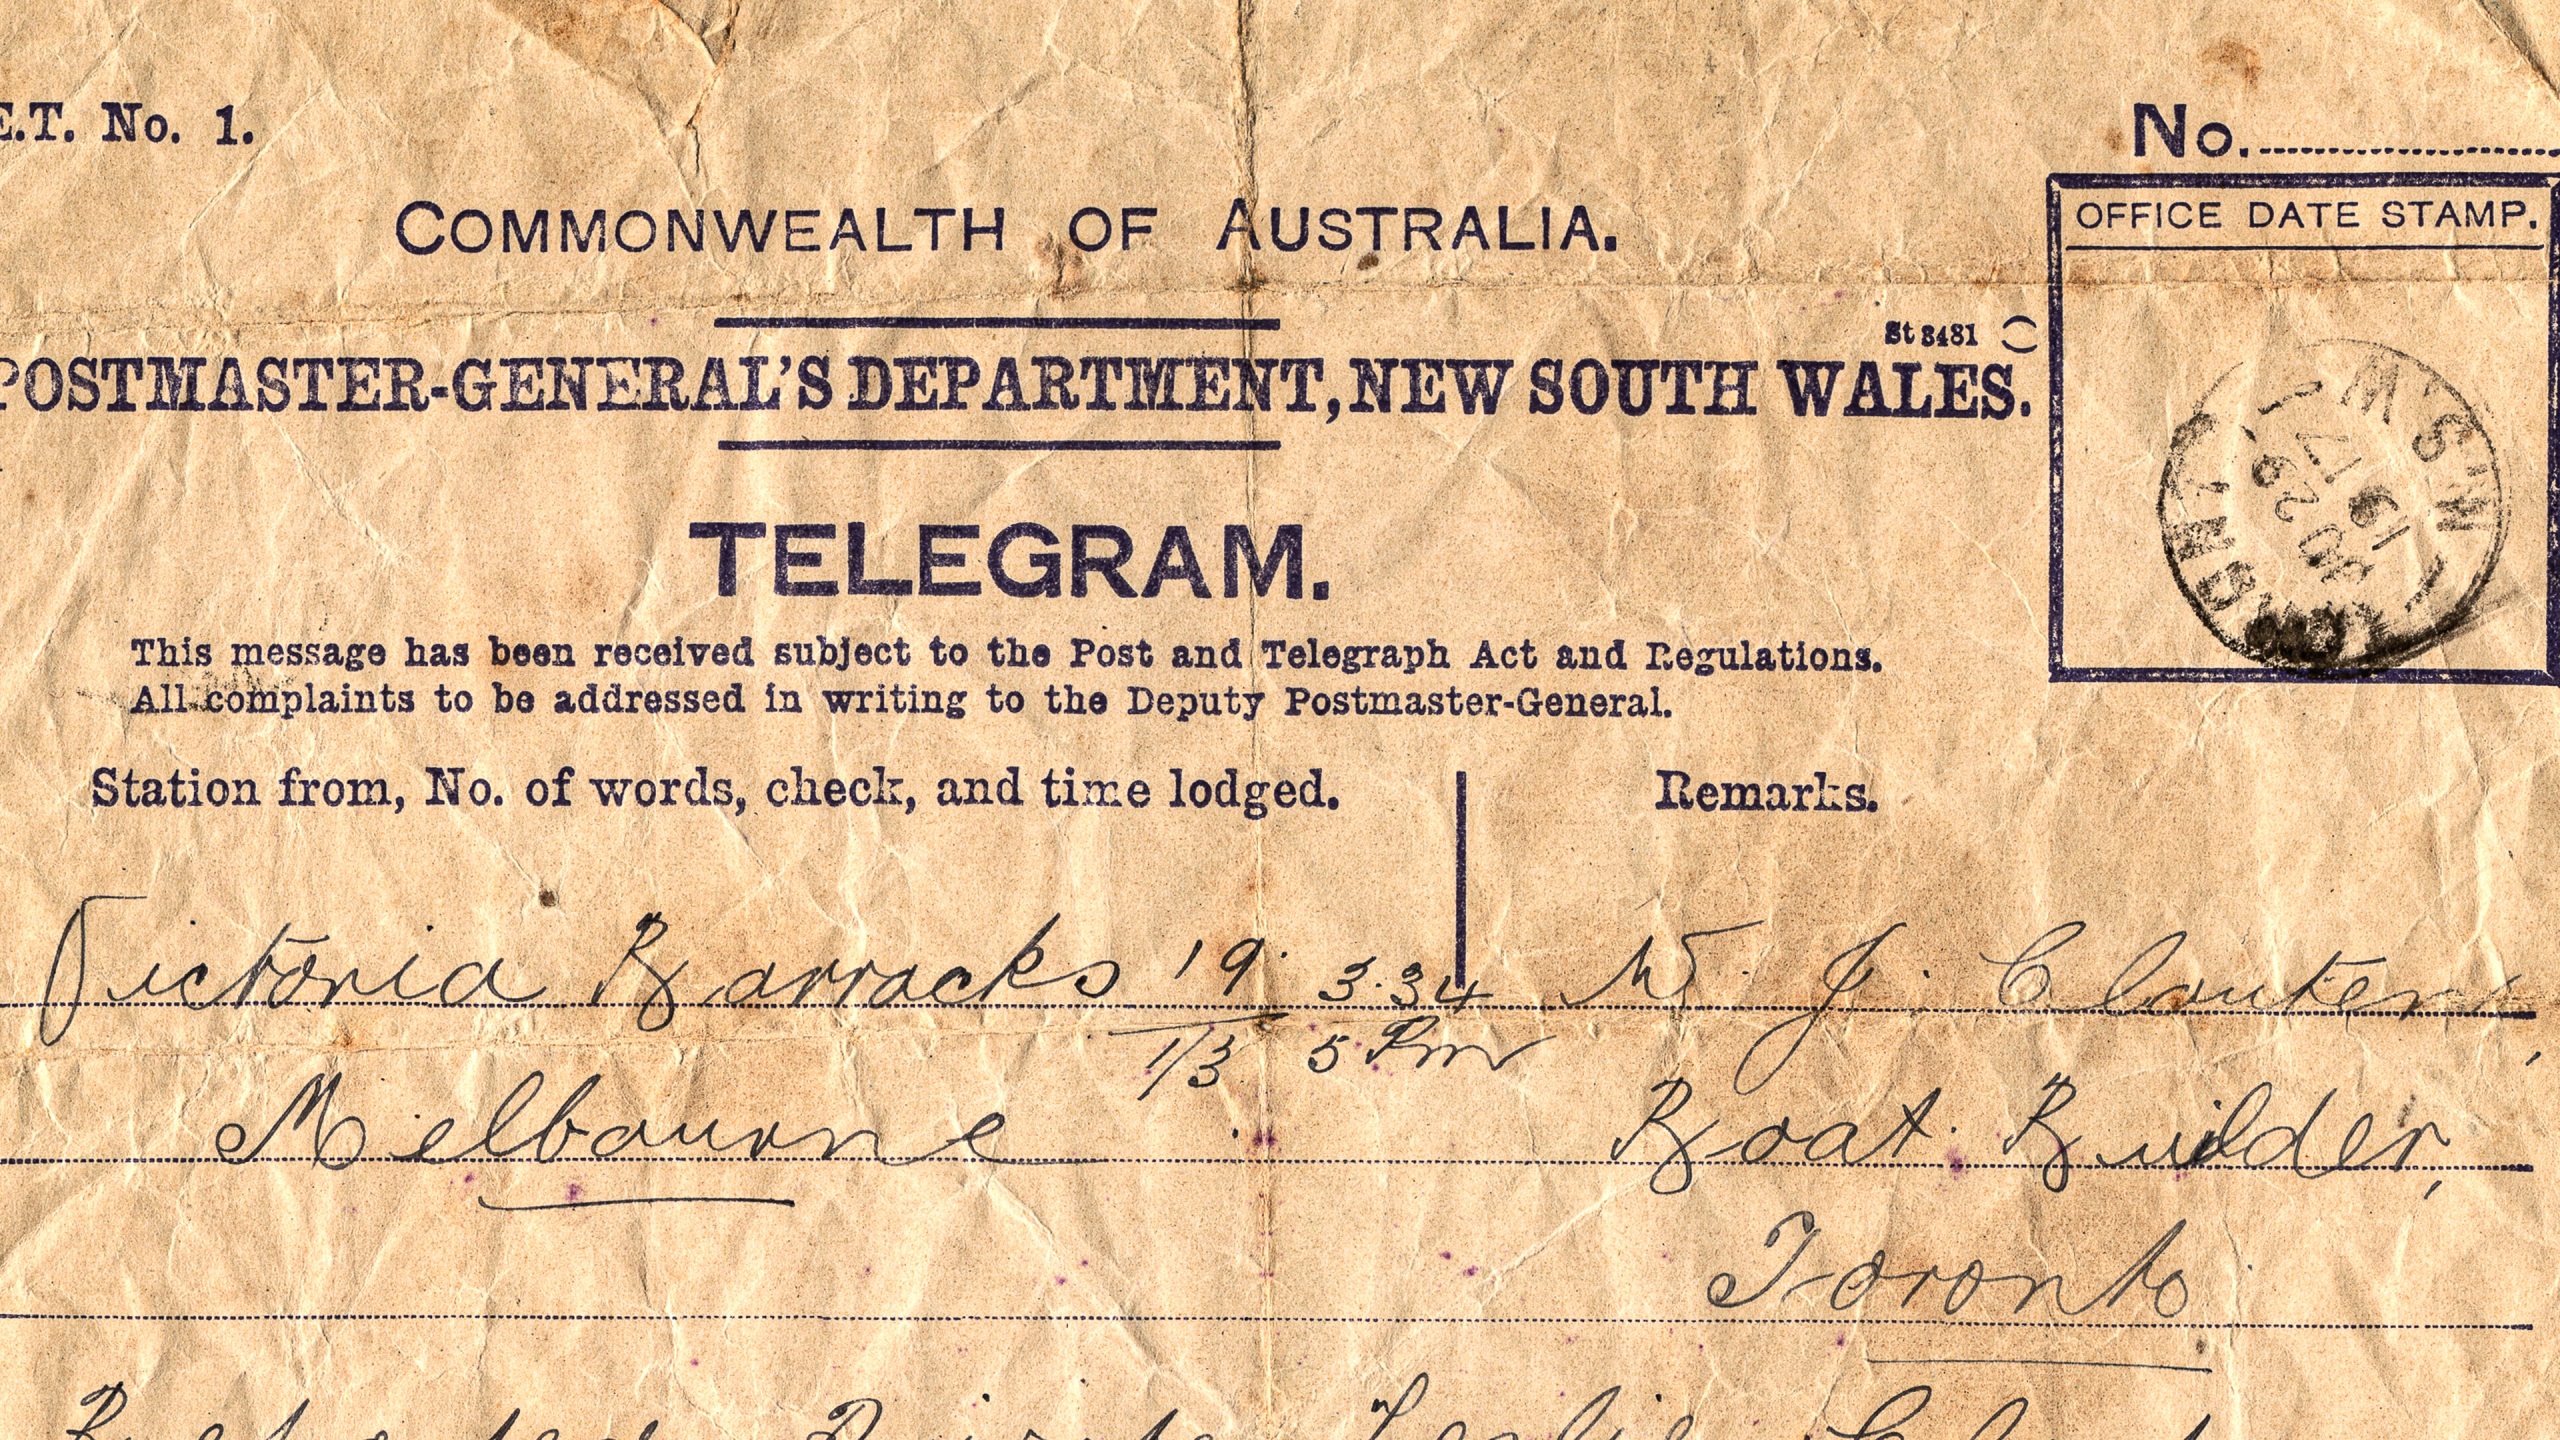 E.T. No. 1.
No.
COMMONWEALTH OF AUSTRALIA.
OFFICE DATE STAMP.
St 8481
POSTMASTER-GENERAL'S DEPARTMENT, NEW SOUTH WALES.
TORONTO
N.S.W
20 OC 17
TELEGRAM.
This message has been received subject to the Post and Telegraph Act and Regulations.
All complaints to be addressed in writing to the Deputy Postmaster-General.
Station from, No. of words, check, and time lodged.
Remarks.
Victoria Barracks 19. 3.34
1/3 5 Pm
Melbourne
W. J. Clouten,
Boat Builder,
Toronto
Private Leslie